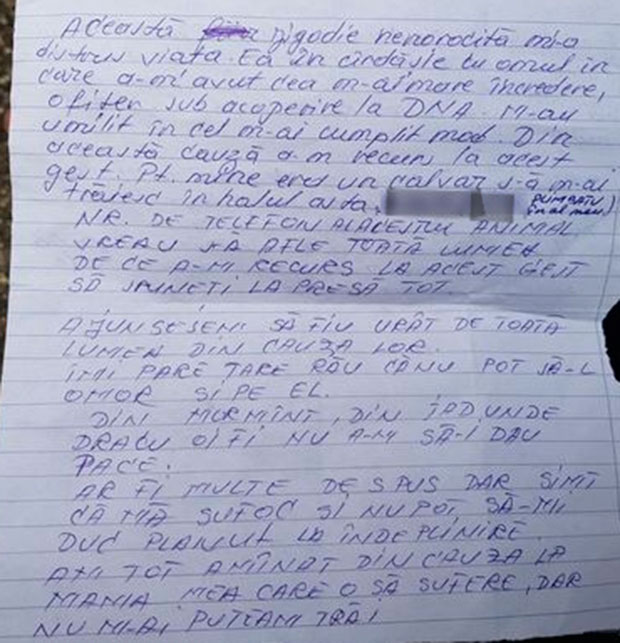 Această jigodie nenorocită mi-a
distrus viața. Ea în cîrdășie cu omul în
care a-m avut cea m-ai mare încredere,
ofițer sub acoperire la DNA. M-au
umilit în cel m-ai cumplit mod. Din
această cauză a-m recurs la acest
gest. Pt. mine era un calvar s-ă m-ai
trăiesc în halul ăsta.
NR. DE TELEFON AL ACESTUI ANIMAL
VREAU SĂ AFLE TOATĂ LUMEA
DE CE A-M RECURS LA ACEST GEST
SĂ SPUNEȚI LA PRESĂ TOT.
AJUNSESEM SĂ FIU URÂT DE TOATĂ
LUMEA DIN CAUZA LOR.
ÎMI PARE TARE RĂU CĂ NU POT SĂ-L
OMOR ȘI PE EL.
DIN MORMÎNT, DIN IAD UNDE
DRACU OI FI NU A-M SĂ-I DAU
PACE.
AR FI MULTE DE SPUS DAR SIMT
CĂ MĂ SUFOC ȘI NU POT SĂ-MI
DUC PLANUL LA ÎNDEPLINIRE.
AM TOT AMÎNAT DIN CAUZA LA
MAMA MEA CARE O SĂ SUFERE, DAR
NU M-AI PUTEAM TRĂI